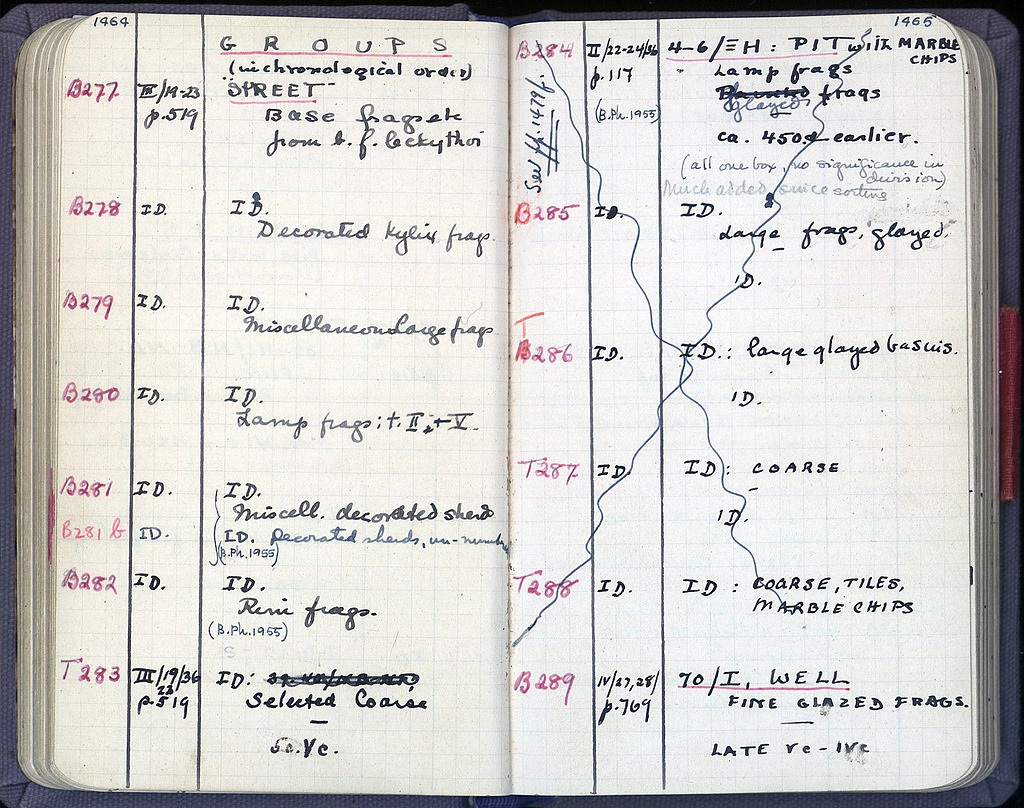 1464
G R O U P S
(in chronological order)
B277 III/19-23 STREET
p.519 Base frags etc
from b.f. leckythoi
B278 ID. ID.
Decorated kylix frags.
B279 ID. ID.
Miscellaneous Large frags
B280 ID. ID.
Lamp frags: t. II, + V.
B281 ID. ID.
Miscell. decorated sherds
B281 b ID. ID. Decorated sherds, un-numbere
(B.Ph.1955)
B282 ID. ID.
Rim frags.
(B.Ph.1955)
T283 III/19/36 ID:
23
p.519 Selected Coarse
Vc.
1465
B284 II/22-24/36 4-6/ΞH: PIT with MARBLE
CHIPS
p.117 Lamp frags
Painted frags
glazed
(B.Ph.1955)
ca. 450 & earlier.
(all one box, no significance in
division)
Much added since sorting
See pp. 1479f.
B285 ID. ID.
Large frags, glazed.
ID.
T
B286 ID. ID.: large glazed basins.
ID.
T287 ID. ID: COARSE
ID.
T288 ID. ID: COARSE, TILES,
MARBLE CHIPS
B289 IV/27,28/ 70/I, WELL
p.769 FINE GLAZED FRAGS.
LATE Vc - IVc